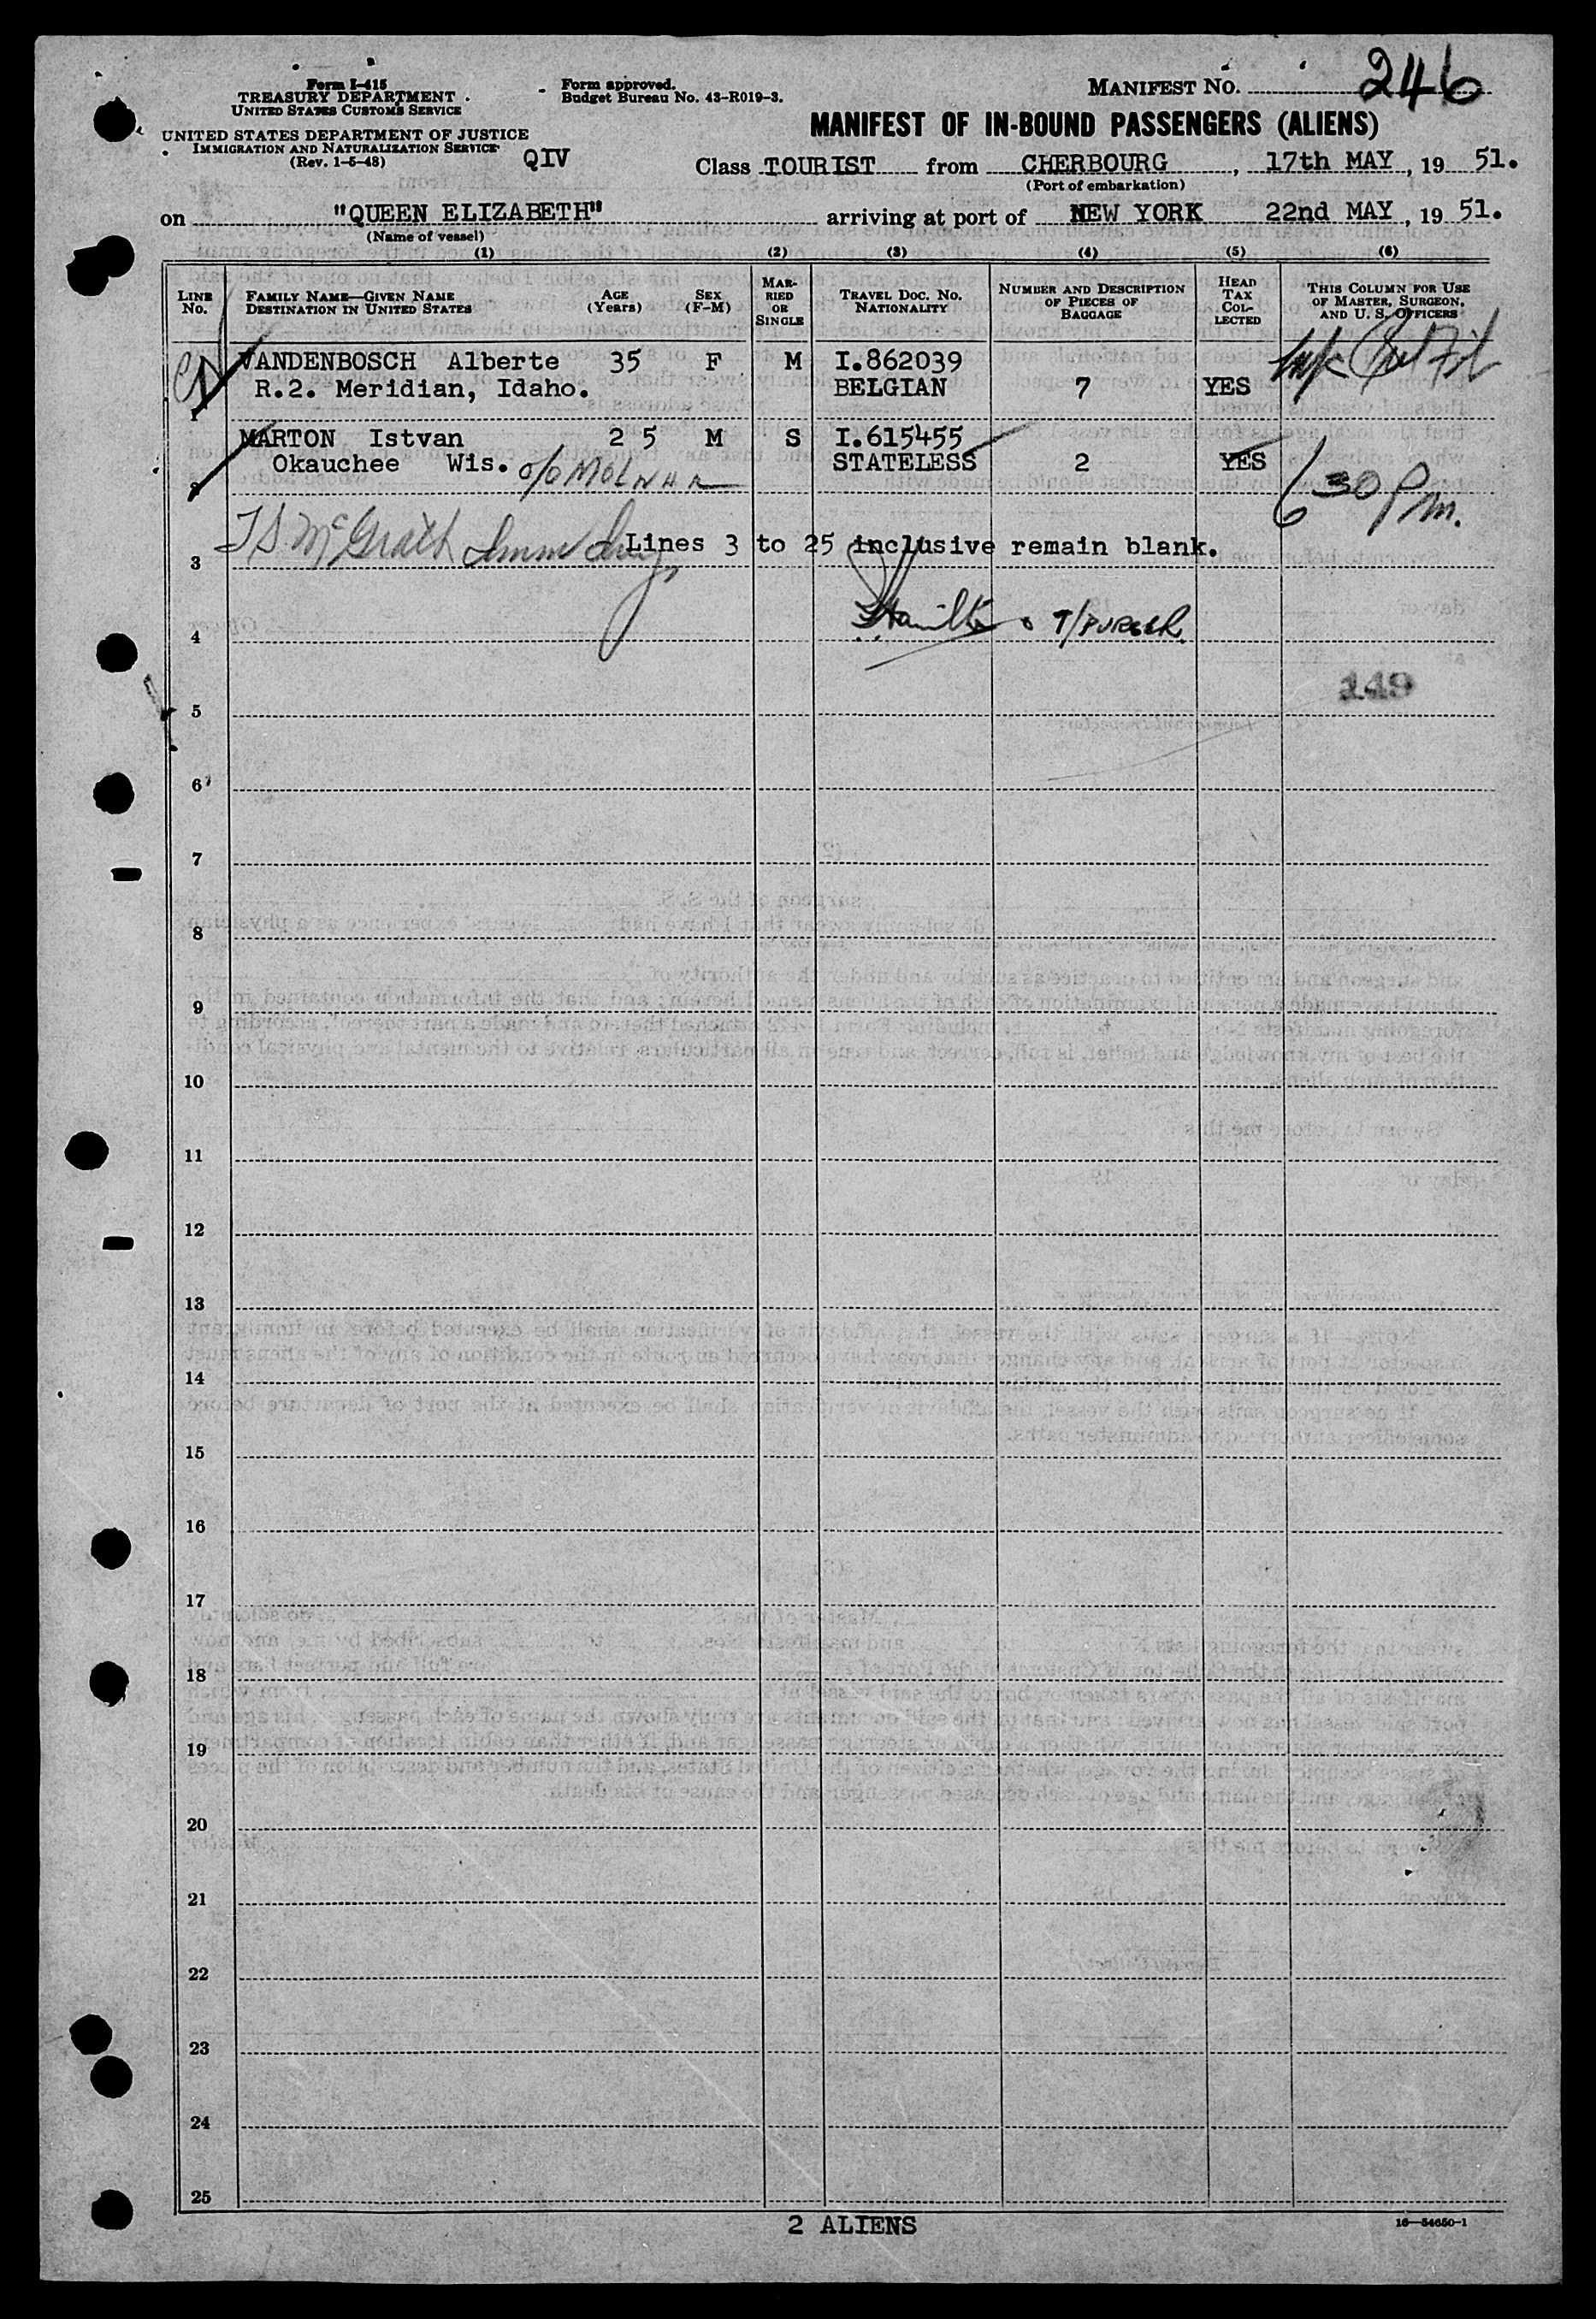 Form I-415
TREASURY DEPARTMENT
UNITED STATES CUSTOMS SERVICE
UNITED STATES DEPARTMENT OF JUSTICE
IMMIGRATION AND NATURALIZATION SERVICE
(Rev. 1-5-48)
QIV
Form approved.
Budget Bureau No. 43-R019-3.
MANIFEST NO. 246
MANIFEST OF IN-BOUND PASSENGERS (ALIENS)
Class TOURIST from CHERBOURG, 17th MAY, 19 51.
(Port of embarkation)
on "QUEEN ELIZABETH" arriving at port of NEW YORK 22nd MAY, 19 51.
(Name of vessel)
(1) (2) (3) (4) (5) (6)
LINE NO.
FAMILY NAME—GIVEN NAME
DESTINATION IN UNITED STATES
AGE (Years)
SEX (F-M)
MARRIED OR SINGLE
TRAVEL DOC. NO.
NATIONALITY
NUMBER AND DESCRIPTION OF PIECES OF BAGGAGE
HEAD TAX COLLECTED
THIS COLUMN FOR USE OF MASTER, SURGEON, AND U. S. OFFICERS
1 VANDENBOSCH Alberte 35 F M I.862039
R.2. Meridian, Idaho. BELGIAN 7 YES
2 MARTON Istvan 2 5 M S I.615455
Okauchee Wis. c/o MOLNAR STATELESS 2 YES
630 Pm.
T S McGrath Imm Insp
3 Lines 3 to 25 inclusive remain blank.
4 Hamilton T/PURSER
149
5
6
7
8
9
10
11
12
13
14
15
16
17
18
19
20
21
22
23
24
25
2 ALIENS
16—54650-1